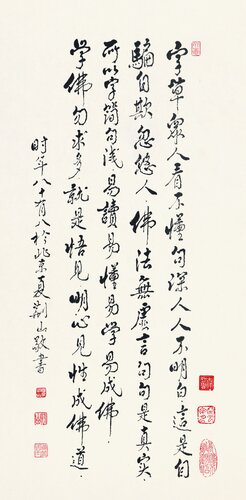 字草眾人看不懂句深人人不明白這是自
騙自欺忽悠人佛法無虛言句句是真實
所以字簡句淺易讀易懂易學易成佛
学佛勿求多就是悟見明心見性成佛道
时年八十有八於北京夏荆山敬書